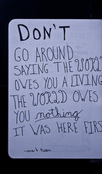 DON'T
GO AROUND
SAYING THE WORLD
OWES YOU A LIVING
THE WORLD OWES
YOU nothing
IT WAS HERE FIRS